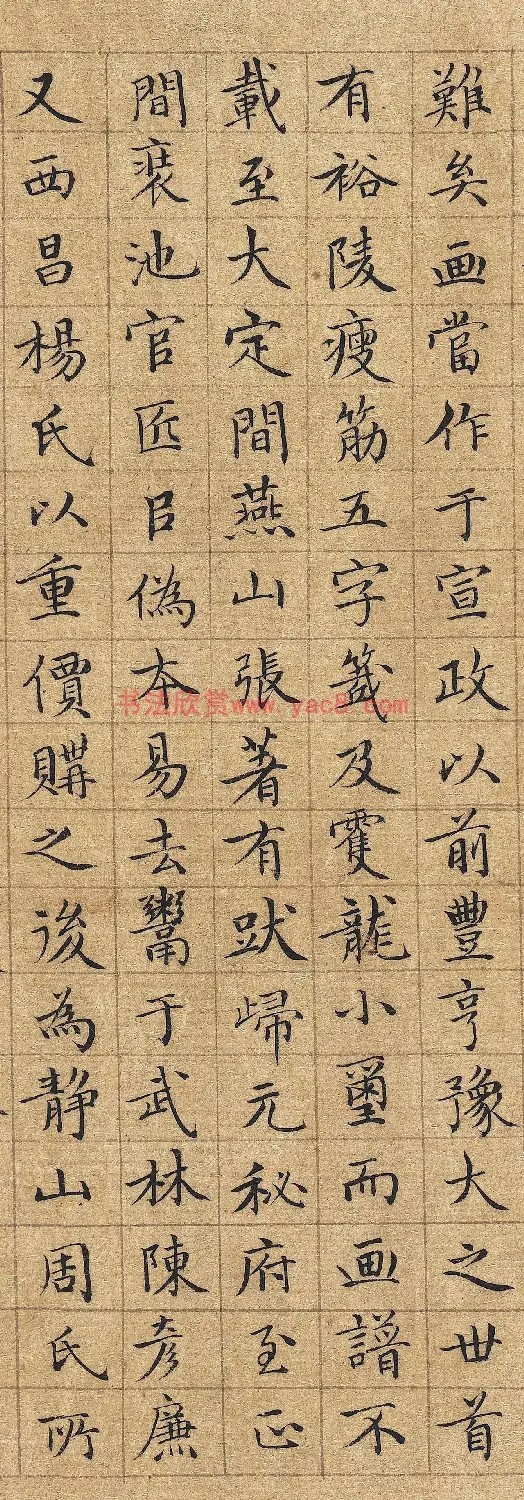 難矣画當作于宣政以前豐亨豫大之世首
有裕陵瘦筋五字籖及雙龍小璽而画譜不
載至大定間燕山張著有跋歸元秘府至正
間裝池官匠㠯偽本易去鬻于武林陳彦廉
又西昌楊氏以重價購之後為静山周氏所
书法欣赏www.yac8.com